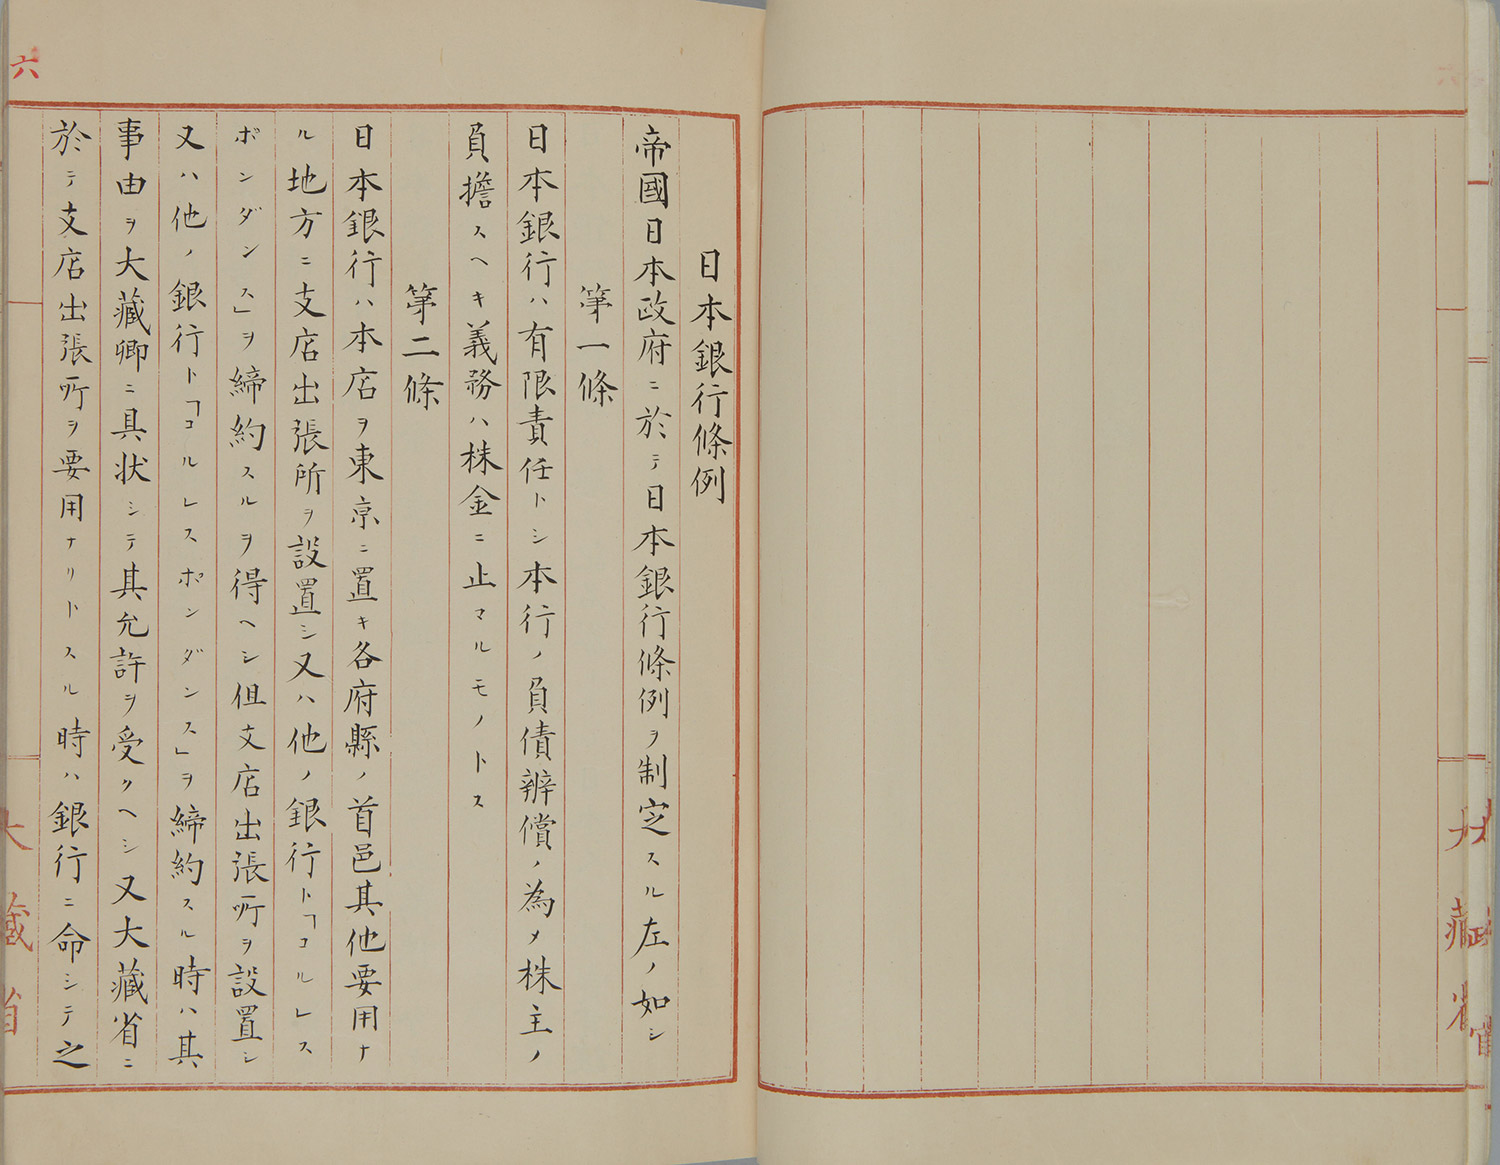 日本銀行條例
帝國日本政府ニ於テ日本銀行條例ヲ制定スル左ノ如シ
第一條
日本銀行ハ有限責任トシ本行ノ負債辨償ノ為メ株主ノ
負擔スヘキ義務ハ株金ニ止マルモノトス
第二條
日本銀行ハ本店ヲ東京ニ置キ各府縣ノ首邑其他要用ナ
ル地方ニ支店出張所ヲ設置シ又ハ他ノ銀行ト「コルレス
ポンダンス」ヲ締約スルヲ得ヘシ但支店出張所ヲ設置シ
又ハ他ノ銀行ト「コルレスポンダンス」ヲ締約スル時ハ其
事由ヲ大藏卿ニ具状シテ其允許ヲ受クヘシ又大藏省ニ
於テ支店出張所ヲ要用ナリトスル時ハ銀行ニ命シテ之
六
大藏省
大藏省